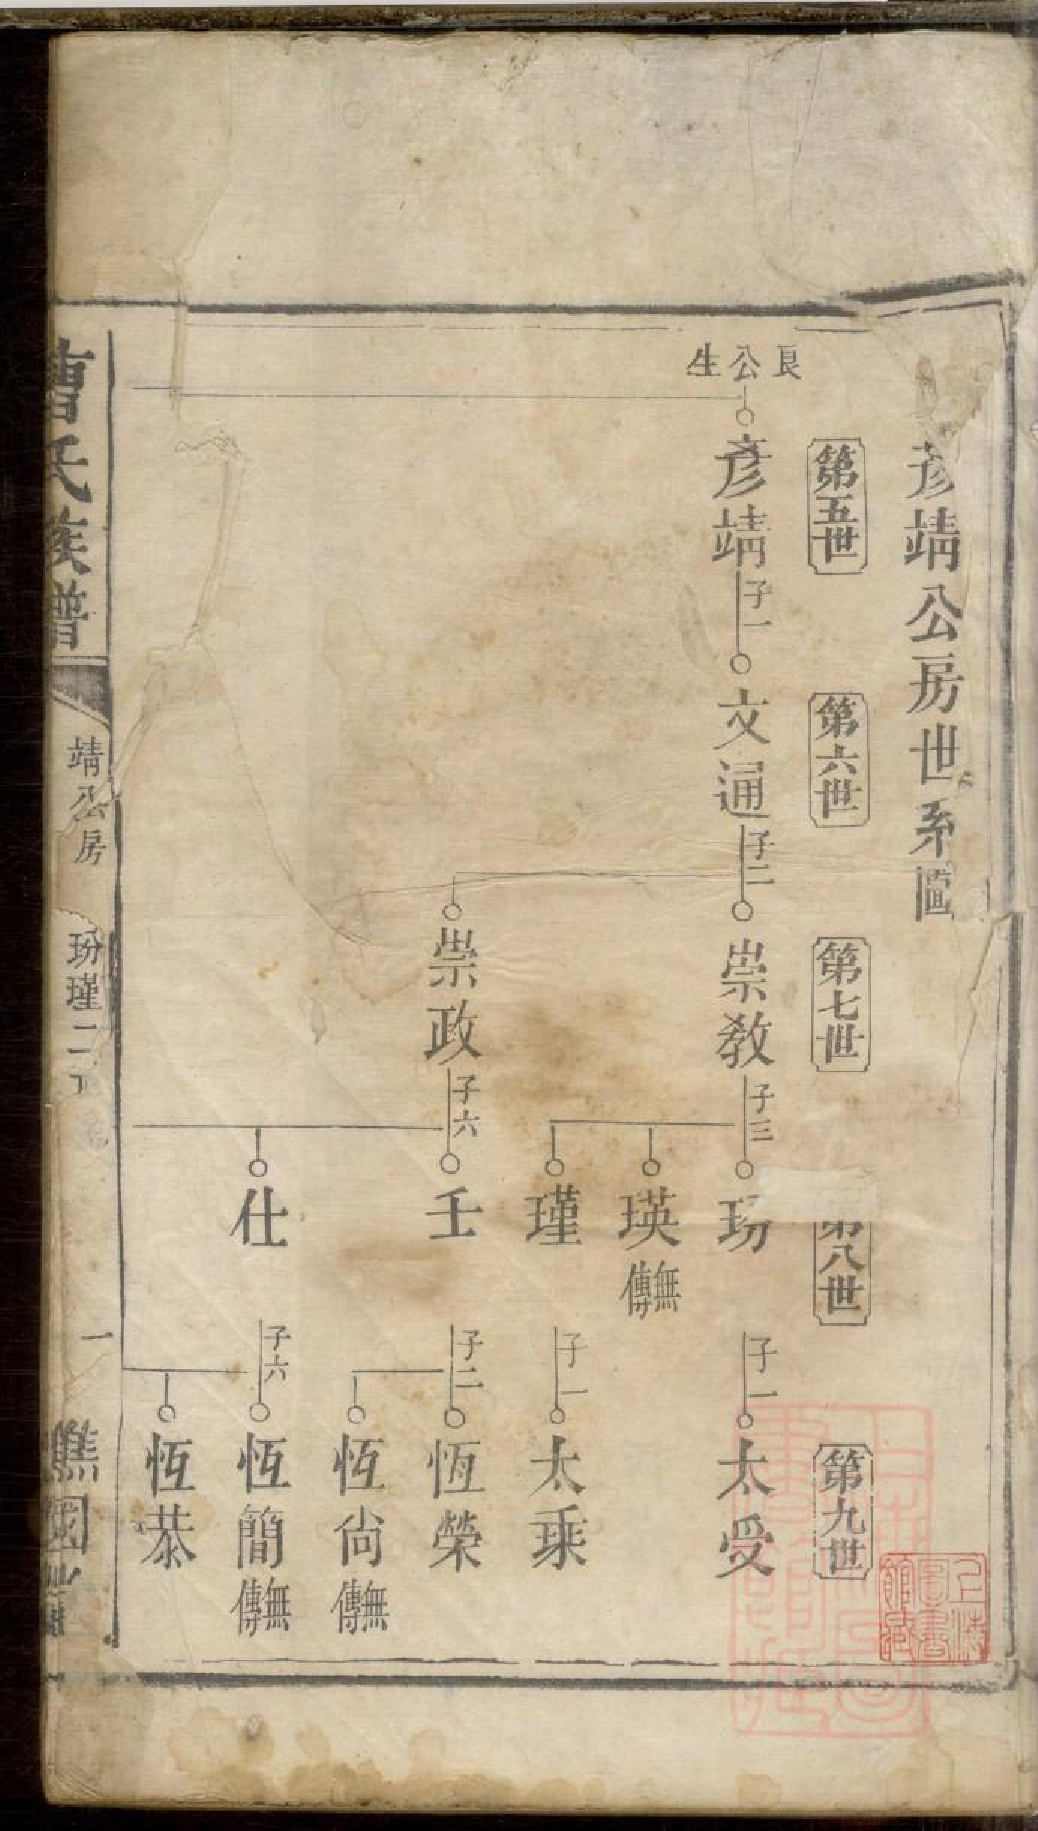 彥靖公房世系圖
第五世
第六世
第七世
第八世
第九世
良公生
彥靖
子一
文通
子二
崇教
子三
玢
子一
太受
瑛
無傳
瑾
子一
太乘
崇政
子六
壬
子二
恆榮
恆尙
無傳
仕
子六
恆簡
無傳
恆恭
曹氏族譜
靖公房
玢瑾二
一
譙國
上海圖書館藏